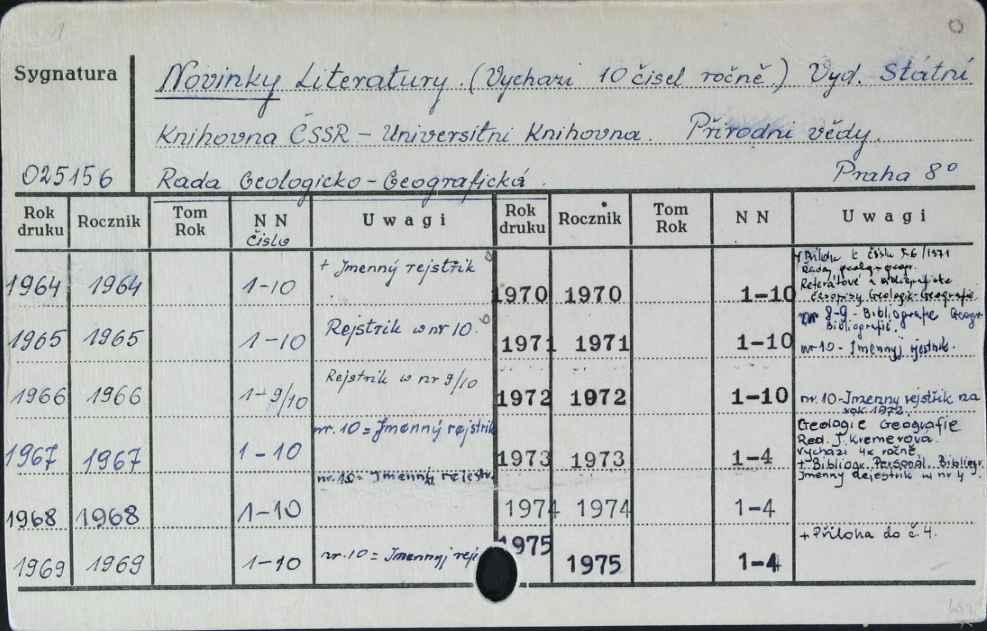 Sygnatura
Novinky Literatury. (Vychazi 10 čisel ročně.) Vyd. Státní
Knihovna ČSSR - Universitni Knihovna. Přirodni vědy.
025156 Rada Geologicko-Geografická. Praha 8°
Rok druku Rocznik Tom Rok N N čislo Uwagi Rok druku Rocznik Tom Rok N N Uwagi
1964 1964 1-10 + Jmenný rejstřik
1965 1965 1-10 Rejstřik w nr 10.
1966 1966 1-9/10 Rejstřik w nr 9/10
1967 1967 1-10 nr. 10 = Jmenný rejstřik
1968 1968 1-10 nr. 10 = Jmenný rejestr
1969 1969 1-10 nr. 10 = Jmennyj rej
1970 1970 1-10
čislu 5-6/1971
Rady geolog-geogr.
Referátové a
časopisy Geologic-Geografie
1971 1971 1-10 nr 8-9 - Bibliografie Geogr.
Bibliografií.
nr 10 - Jmennyj rejstřik.
1972 1972 1-10 nr. 10-Jmenny rejstřik za
rok 1972.
1973 1973 1-4 Geologie Geografie
Red. J. Kremerová.
Vychází 4x ročně.
+ Bibliogr. Personál. Bibliogr.
Jmenny rejestrik w nr 4.
1974 1974 1-4
1975 1975 1-4 + Příloha do č. 4.